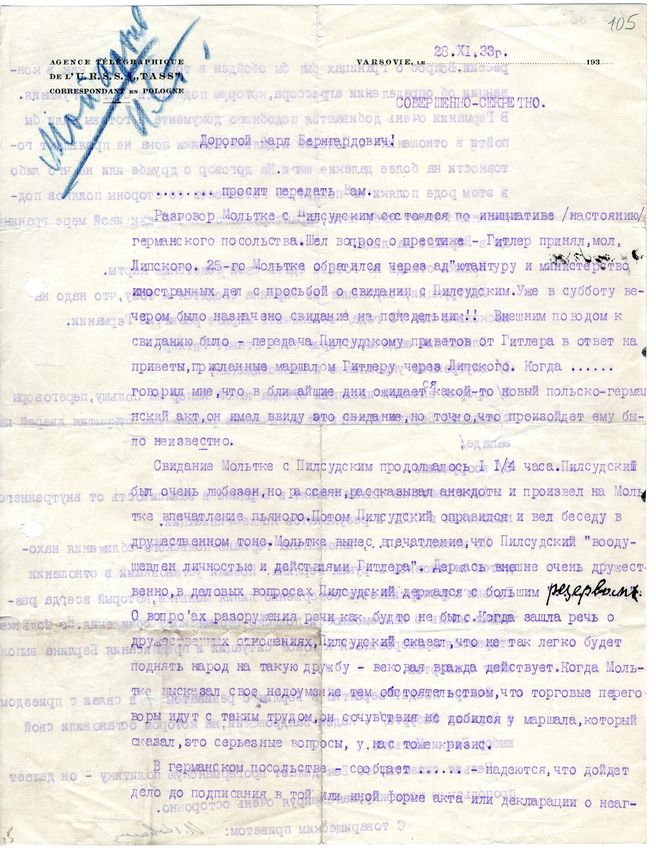 105
AGENCE TÉLÉGRAPHIQUE
DE L'U.R.S.S. „TASS"
CORRESPONDANT EN POLOGNE
VARSOVIE, LE
193
28.XI.33г.
Мой архив
СОВЕРШЕННО-СЕКРЕТНО.
Дорогой Карл Бернгардович!
........ просит передать Вам.
Разговор Мольтке с Пилсудским состоялся по инициативе /настоянию/
германского посольства.Шел вопрос о престиже - Гитлер принял,мол,
Липского. 25-го Мольтке обратился через ад"ютантуру и министерство
иностранных дел с просьбой о свидании с Пилсудским.Уже в субботу ве-
чером было назначено свидание на понедельник!! Внешним поводом к
свиданию было - передача Пилсудскому приветов от Гитлера в ответ на
приветы,присланные маршалом Гитлеру через Липского. Когда ......
говорил мне,что в ближайшие дни ожидается какой-то новый польско-герма-
нский акт,он имел ввиду это свидание,но точно,что произойдет ему бы-
ло неизвестно.
Свидание Мольтке с Пилсудским продолжалось I I/4 часа.Пилсудский
был очень любезен,но рассеян,рассказывал анекдоты и произвел на Моль-
тке впечатление пьяного.Потом Пилсудский оправился и вел беседу в
дружественном тоне.Мольтке вынес впечатление,что Пилсудский "вооду-
шевлен личностью и действиями Гитлера". Держась внешне очень дружест-
венно,в деловых вопросах Пилсудский держался с большим резервом.
О вопро'ах разоружения речи как будто не было.Когда зашла речь о
дружественных отношениях,Пилсудский сказал,что не так легко будет
поднять народ на такую дружбу - вековая вражда действует.Когда Моль-
тке высказал свое недоумение тем обстоятельством,что торговые перего-
воры идут с таким трудом,он сочувствия не добился у маршала,который
сказал,это серьезные вопросы, у нас тоже кризис.
В германском посольстве - сообщает ........ - надеются,что дойдет
дело до подписания в той или иной форме акта или декларации о неаг-